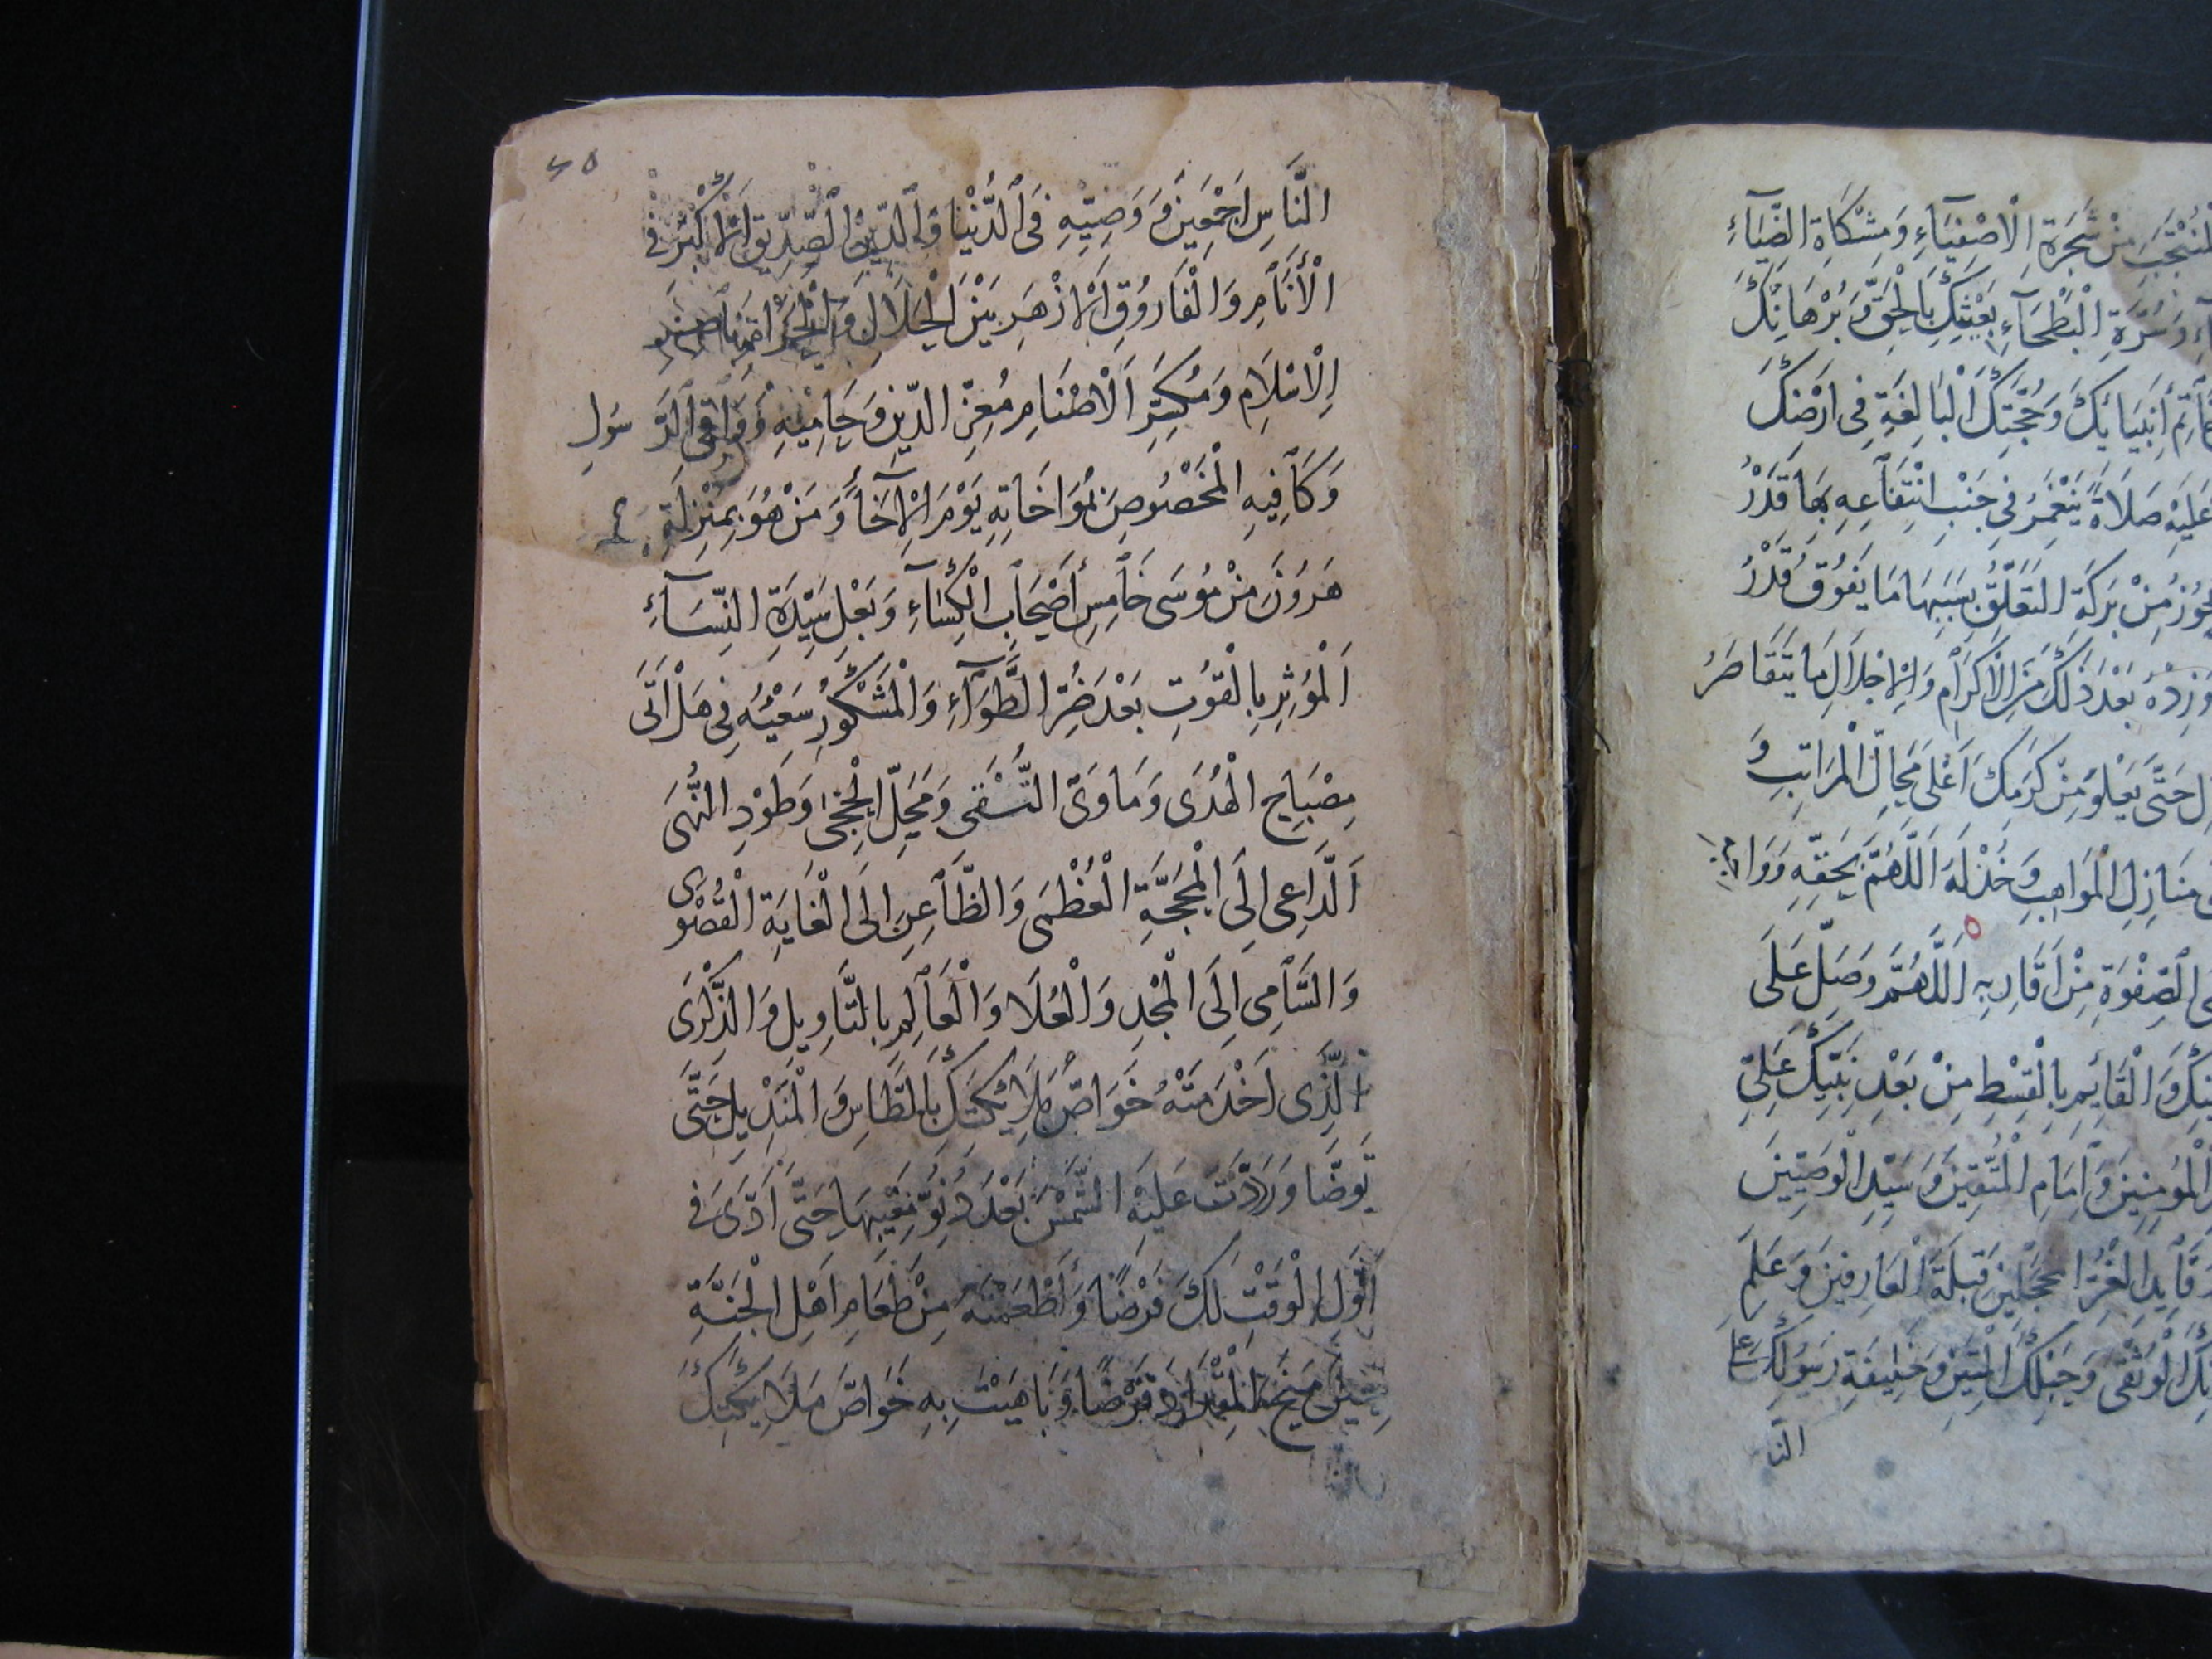 المنتجب من شجرة الاصفياء ومشكاة الضياء
وسرة البطحاء بعثك بالحق وبرهانك
خاتم أنبيائك وحجتك البالغة في ارضك
عليه صلاة ينغمر في جنب انتفاعه بها قدر
يحوز من بركة التعلق بسببها ما يفوق قدر
وزده بعد ذلك من الاكرام والاجلال ما يتقاصر
حتى يعلو من كرمك اعلى محال المراتب و
منازل المواهب وخذ له اللهم بحقه
الصفوة من اقاربه اللهم وصل على
والقائم بالقسط من بعد نبيك علي
المؤمنين وامام المتقين وسيد الوصيين
وقايد الغر المحجلين قبلة العارفين وعلم
الوثقى وحبلك المتين وخليفة رسولك على
النا
النَّاسِ اَجْمَعِينَ وَوَصِيِّهِ فِي الدُّنْيَا وَالدِّينِ الصِّدِّيقِ الاَكْبَرِ فِي
الْأَنَامِ وَالْفَارُوقِ الاَزْهَرِ بَيْنَ الْحَلَالِ وَالْحَرَامِ نَاصِرِ
الاِسْلَامِ وَمُكَسِّرِ الْاَصْنَامِ مُعِزِّ الدِّينِ وَحَامِيهِ وَوَاقِي الرَّسُولِ
وَكَافِيهِ الْمَخْصُوصِ بِمُوَاخَاتِهِ يَوْمَ الْاِخَاءِ وَمَنْ هُوَ بِمَنْزِلَةِ
هَرُونَ مِنْ مُوسَى خَامِسِ أَصْحَابِ الْكِسَاءِ وَبَعْلِ سَيِّدَةِ النِّسَاءِ
اَلْمُؤثِرِ بِالْقُوتِ بَعْدَ ضُرِّ الطَّوَاءِ وَالْمَشْكُورِ سَعْيُهُ فِي هَلْ اَتَى
مِصْبَاحِ الْهُدَى وَمَاوَى التُّقَى وَمَحَلِّ الْحِجَى وَطَوْدِ النُّهَى
اَلدَّاعِي اِلَى الْمَحَجَّةِ الْعُظْمَى وَالظَّاعِنِ اِلَى الْغَايَةِ الْقُصْوَى
وَالسَّامِي اِلَى الْمَجْدِ وَالْعُلَا وَالْعَالِمِ بِالتَّاوِيلِ وَالذِّكْرَى
الَّذِي اَخْدَمْتَهُ خَوَاصَّ مَلَائِكَتِكَ بِالطَّاسِ وَالْمَنْدِيلِ حَتَّى
تَوَضَّا وَرَدَدْتَ عَلَيْهِ الشَّمْسَ بَعْدَ دُنُوِّ مَغِيبِهَا حَتَّى اَدَّى فِي
اَوَّلِ الْوَقْتِ لَكَ فَرْضًا وَأَطْعَمْتَهُ مِنْ طَعَامِ اَهْلِ الْجَنَّةِ
حِينَ مَنَحَ الْمِقْدَادَ قَرْضًا وَبَاهَيْتَ بِهِ خَوَاصَّ مَلَائِكَتِكَ